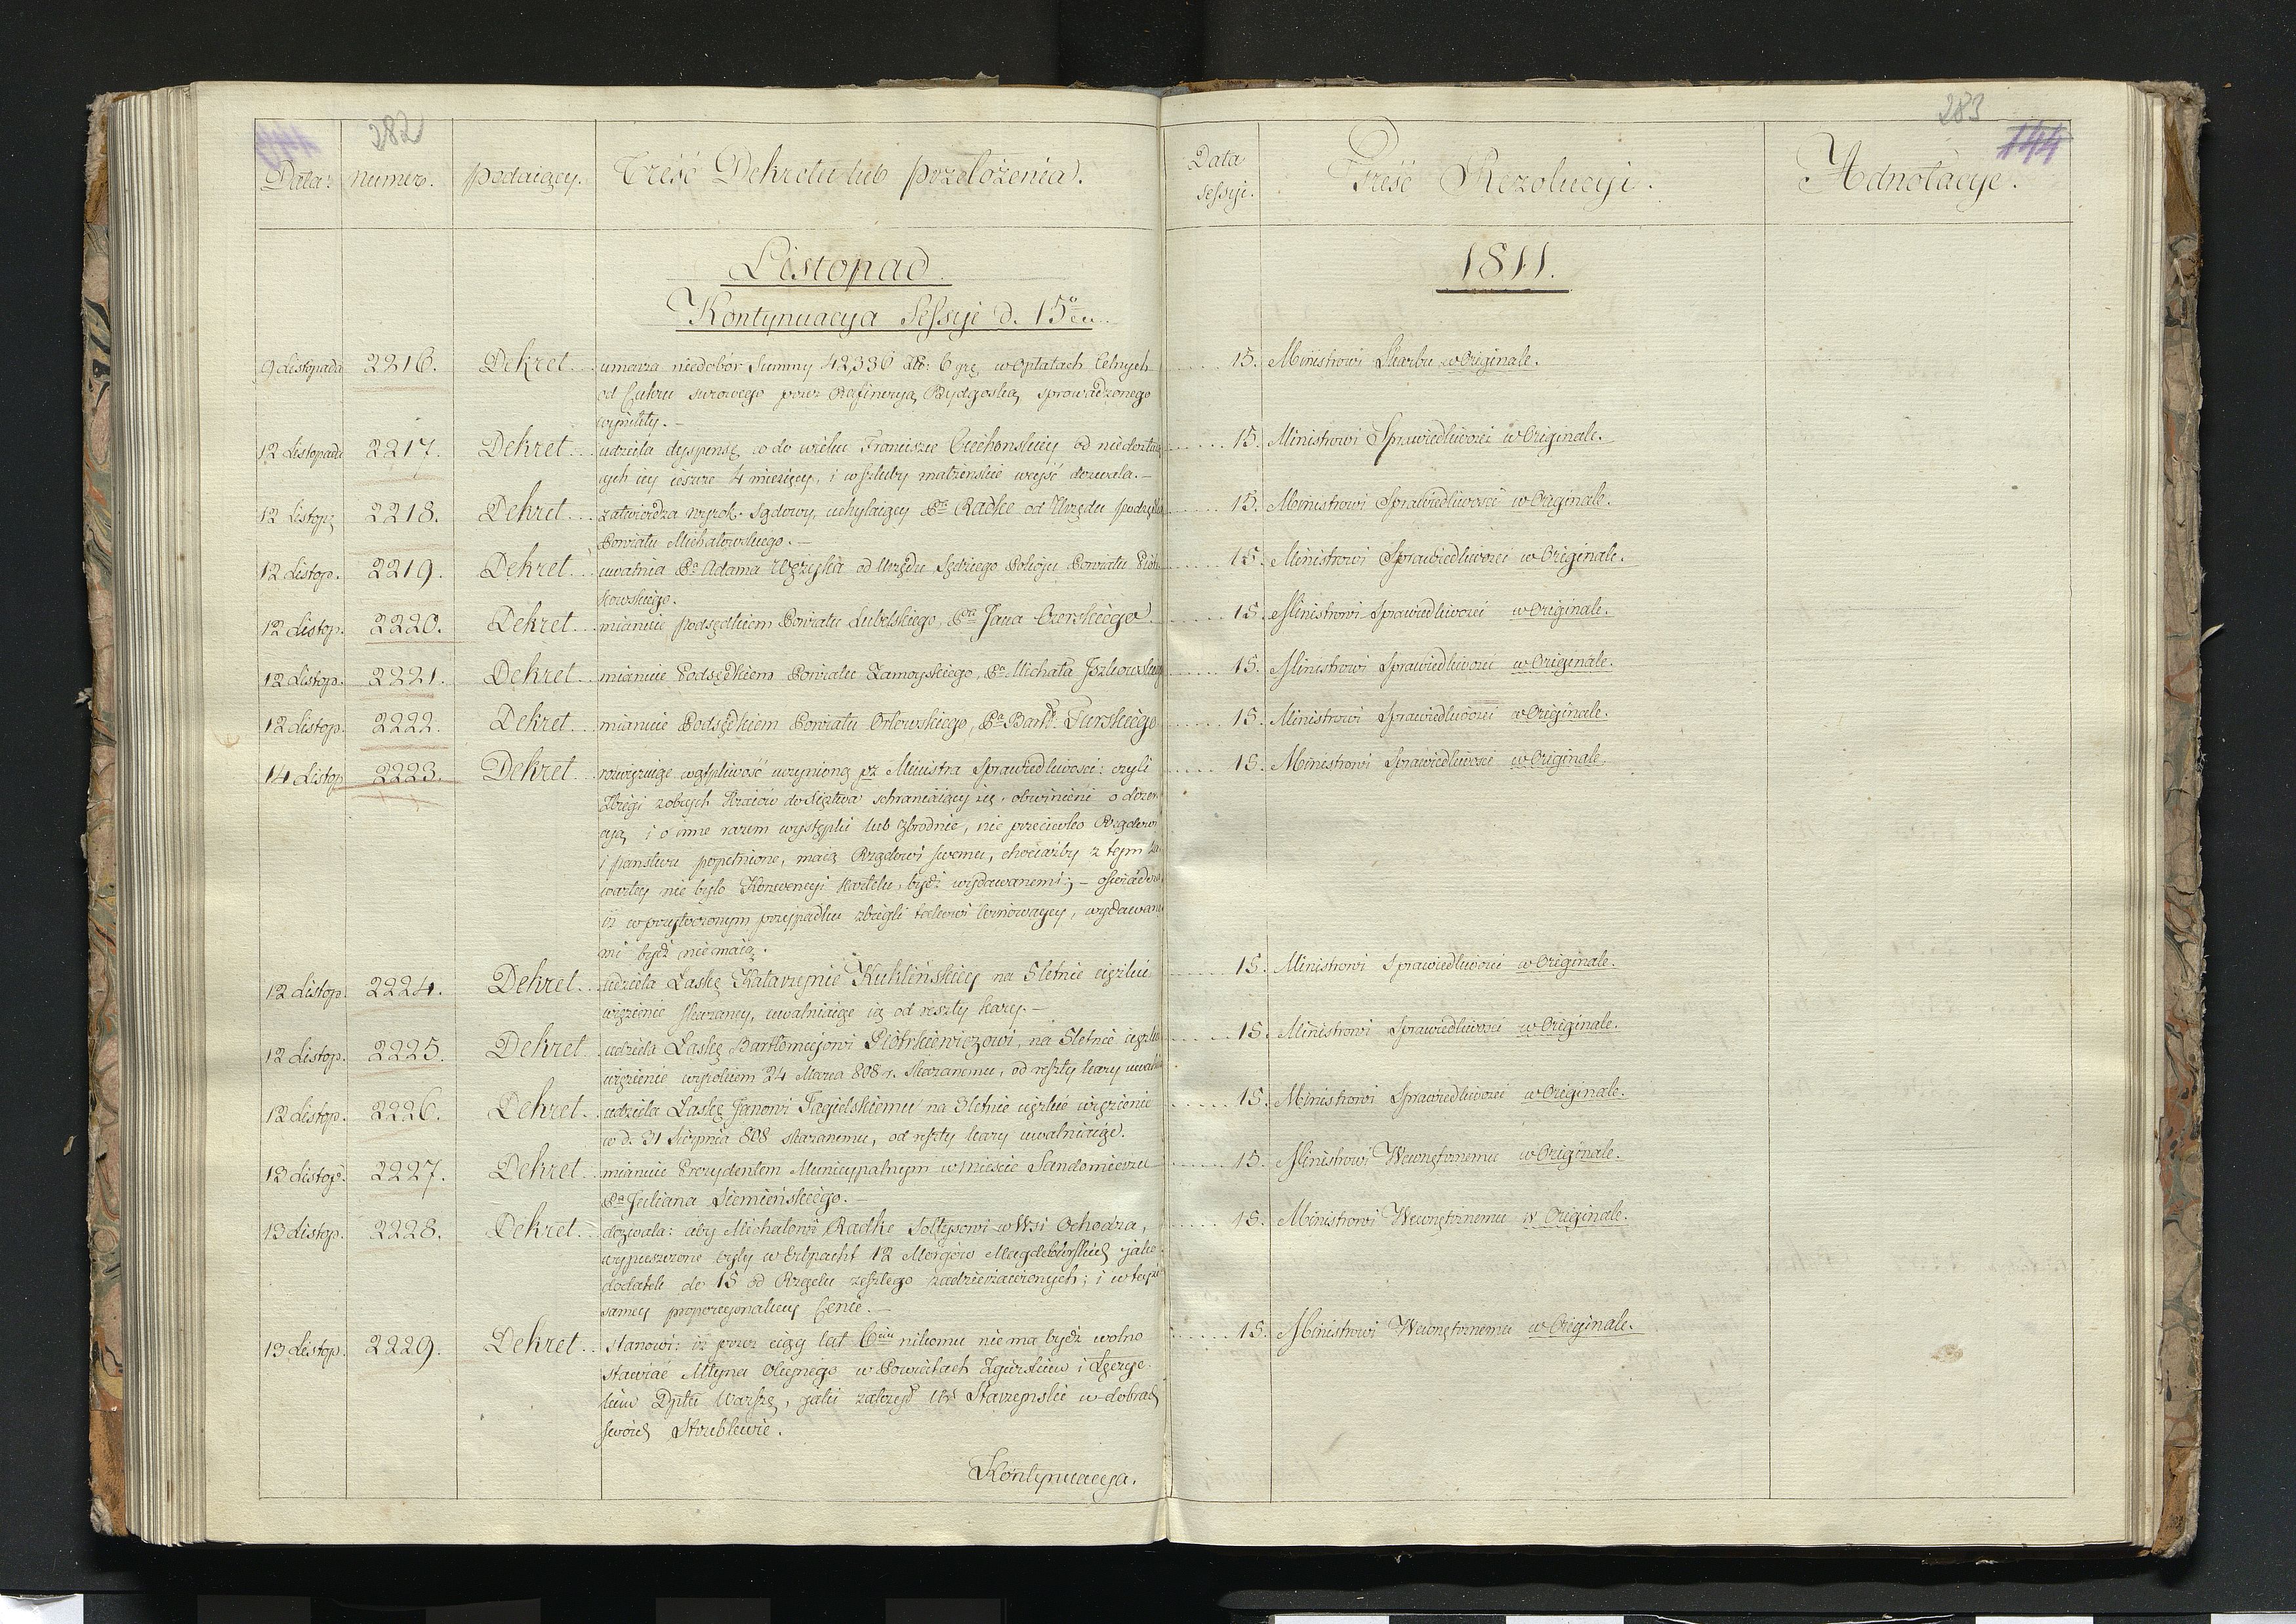 282
Data. numer. podaiący. Treść Dekretu lub przełożenia.
Listopad
Kontynuacya Sessyi d. 15
9 Listopada 2216. Dekret umarza niedobór Summy 42,336 Złł: 6 grę w Opłatach Celnych
od Cukru surowego przez Rafineryą Bydgoską sprowadzonego
wynikły. –
12 Listopada 2217. Dekret udziela dyspensę co do wieku Franciszce Ciechonskiey od niedostaią
cych iey ieszcze 4 miesięcy, i w szluby małżenskie weyść dozwala. –
12 Listop 2218. Dekret zatwierdza wyrok Sądowy, uchylaiący Pa Radke od Urzędu podsędka
Powiatu Michałowskiego. –
12 Listop. 2219. Dekret uwalnia Pa Adama Wężyka od Urzędu Sędziego Pokoju Powiatu Piotr
kowskiego.
12 Listop. 2220. Dekret mianuie podsędkiem Powiatu Lubelskiego, Pa Jana Ozerskiego
12 Listop. 2221. Dekret mianuie Podsędkiem Powiatu Zamoyskiego, Pa Michała
12 Listop. 2222. Dekret mianuie Podsędkiem Powiatu Orłowskiego, Pa Bartł. Turskiego
14 Listop 2223. Dekret rozwięzuiąc wątpliwość uczynioną pz Ministra Sprawiedliwosci: czyli
Zbiegi z obcych Kraiów do Xięstwa schraniaiący się, obwinieni o dezer
cyą i o inne razem występki lub zbrodnie, nie przeciwko Rządowi
i panstwu popełnione, maią Rządowi swemu, chociażby z tem za
wartey nie było Konwencyi kartelu, bydź wydawanemi; – oswiadcza,
iż w przytoczonym przypadku zbiegli takowi wydawane
mi bydź nie maią.
12 Listop. 2224. Dekret udziela Łaskę Katarzynie Kuklińskiey na 5letnie ciężkie
więzienie skazaney, uwalniaiąc ią od reszty kary. –
12 Listop. 2225. Dekret udziela Łaskę Bartłomiejowi Piotrkiewiczowi, na 5letnie ciężkie
więzienie wyrokiem 24 Marca 808 r. skazanemu, od reszty kary uwalnia
12 Listop. 2226. Dekret udziela Łaskę Janowi Jagielskiemu na 5letnie ciężkie więzienie
w d. 31 Sierpnia 808 skazanemu, od reszty kary uwalniaiąc.
13 Listop. 2227. Dekret mianuie Prezydentem Municypalnym w miescie Sandomierzu
Pa Juliana Siemieńskiego. –
13 Listop. 2228. Dekret dozwala: aby Michałowi Radke Sołtysowi w Wsi Ochodza,
wypuszczone były w Erbpacht 12 Morgów Magdeburskich jako
dodatek do 15 od Rządu zeszłego zadzierzawionych; i w teyże
samey proporcyonalney Cenie. –
13 Listop. 2229. Dekret stanowi: iż przez ciąg lat 6ciu nikomu nie ma bydź wolno
stawiać Młyna Oleynego w Powiatach Zgierskim i Łęczyc
kim Dptu Warszę, jaki założył Ur Starzynski w dobrach
swoich Strublewie.
Kontynuacya.
283
144
Data
sessyi. Treść Rezolucyi. Adnotacye.
1811.
15. Ministrowi Skarbu w Originale.
15. Ministrowi Sprawiedliwosci w Originale.
15. Ministrowi Sprawiedliwosci w Originale.
15. Ministrowi Sprawiedliwosci w Originale.
15. Ministrowi Sprawiedliwosci w Originale.
15. Ministrowi Sprawiedliwosci w Originale.
15. Ministrowi Sprawiedliwosci w Originale.
15. Ministrowi Sprawiedliwosci w Originale.
15. Ministrowi Sprawiedliwosci w Originale.
15. Ministrowi Sprawiedliwosci w Originale.
15. Ministrowi Sprawiedliwosci w Originale.
15. Ministrowi Wewnętrznemu w Originale.
15. Ministrowi Wewnętrznemu w Originale.
15. Ministrowi Wewnętrznemu w Originale.